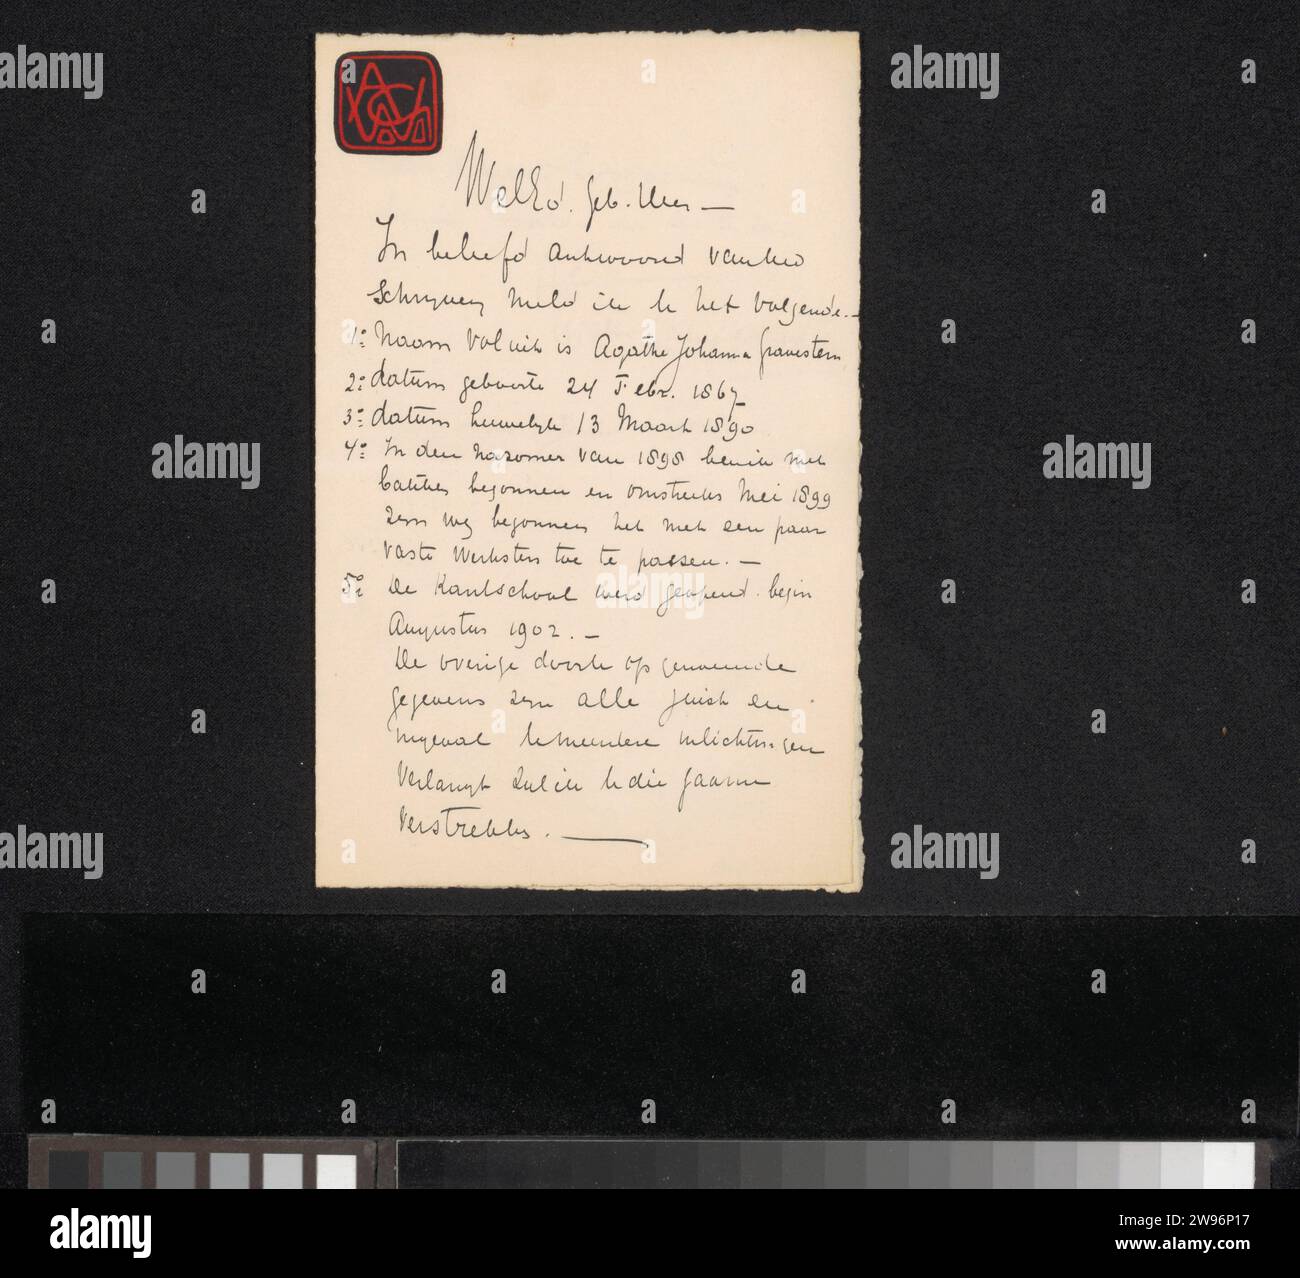 WelEd. Geb. Heer —
In beleefd antwoord van uw
Schrijven meld ik U het volgende. —
1º: Naam voluit is Agathe Johanna Gravestein
2º: datum geboorte 24 Febr. 1867
3º: datum huwelijk 13 Maart 1890
4º: In den nazomer van 1898 ben ik met
batikken begonnen en omstreeks Mei 1899
zijn wij begonnen het met een paar
vaste werksters toe te passen. —
5º: De Kantschool werd geopend begin
Augustus 1902. —
De overige door U opgenoemde
gegevens zijn alle juist en
ingeval U meerdere inlichtingen
verlangt zal ik U die gaarne
verstrekken. —
alamy
Image ID: 2W96P17
www.alamy.com